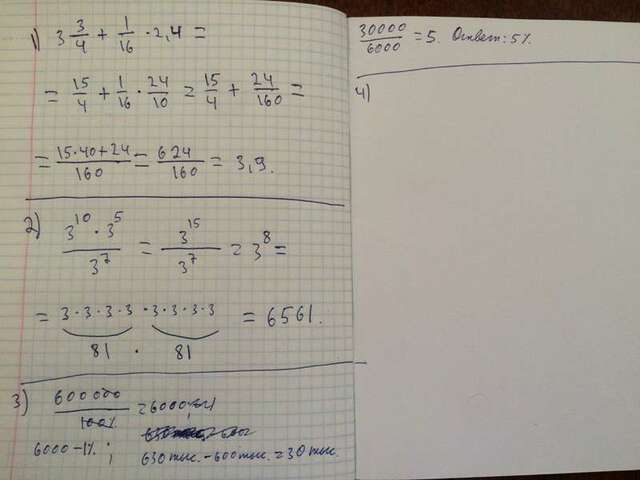 1) 3 3/4 + 1/16 · 2,4 =
= 15/4 + 1/16 · 24/10 = 15/4 + 24/160 =
= (15·40+24)/160 = 624/160 = 3,9.
2) (3^10 · 3^5)/3^7 = 3^15/3^7 = 3^8 =
= 3·3·3·3 · 3·3·3·3 = 6561.
81 · 81
3) 600000/100% = 6000
6000 – 1% ;
630 тыс. – 600 тыс. = 30 тыс.
30000/6000 = 5. Ответ: 5%.
4)